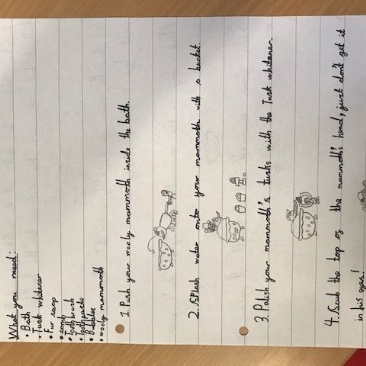 What you need:
• Bath
• Tusk whitener
• Fur soap
• comb
• Toothbrush
• Toothpaste
• Bubbles
• wooly mammoth
1. Push your wooly mammoth inside the bath.
2. Splash water onto your mammoth with a bucket.
3. Polish your mammoth's tusks with the Tusk whitener.
4. Scrub the top of the mammoth's head, just don't get it
in his eyes!